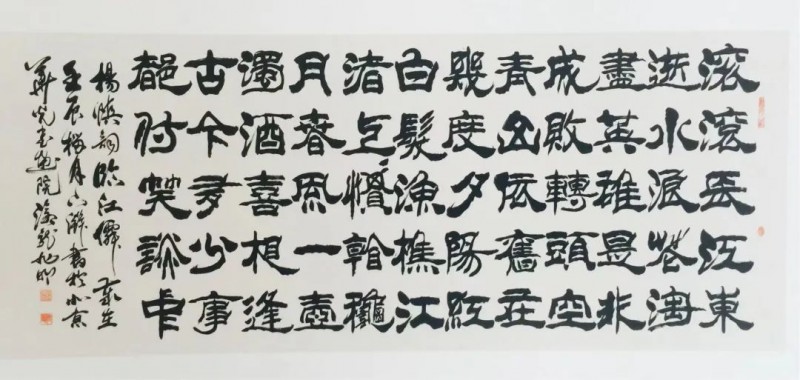 滚滚長江東
逝水浪花淘
盡英雄是非
成敗轉頭空
青山依舊在
幾度夕陽紅
白髮漁樵江
渚上慣看龝
月春風一壺
濁酒喜相逢
古今多少事
都付笑談中
楊慎詞臨江僊 歲在
壬辰梅月書於北京
華書画院